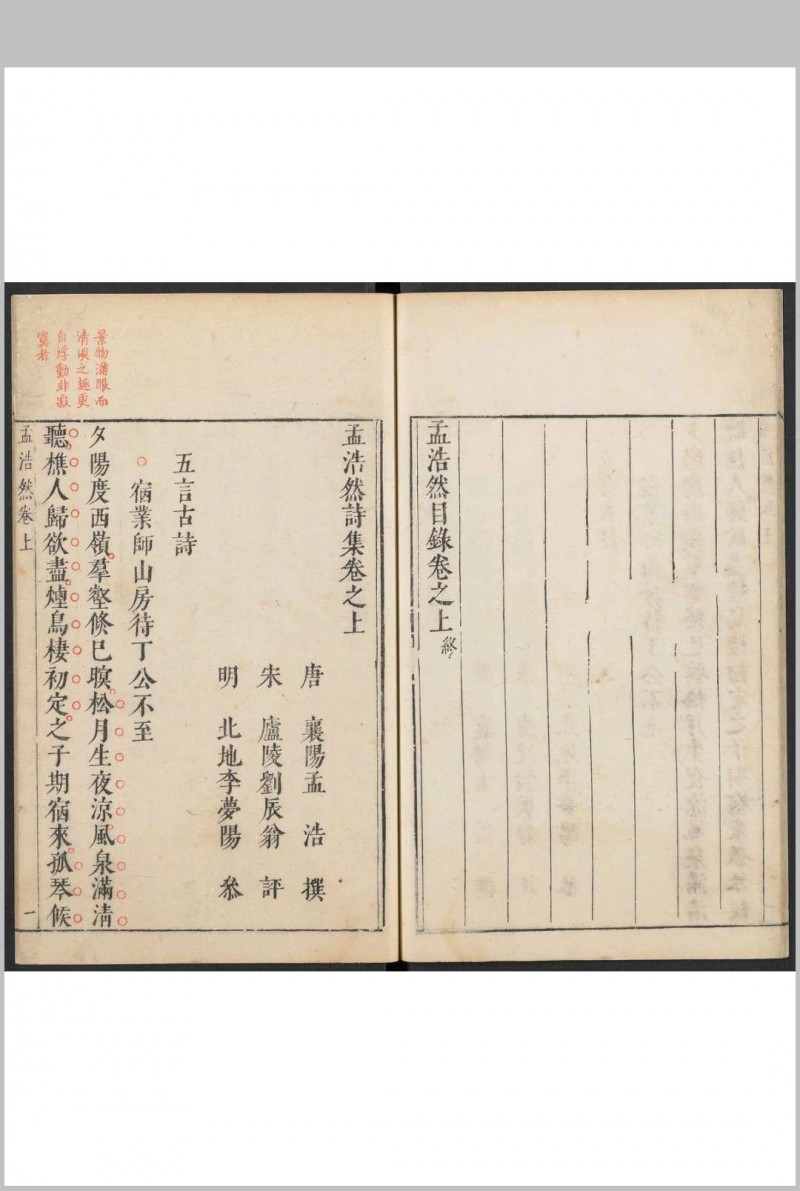 孟浩然目錄卷之上終
孟浩然詩集卷之上
唐 襄陽孟 浩 撰
宋 廬陵劉辰翁 評
明 北地李夢陽 叅
五言古詩
宿業師山房待丁公不至
夕陽度西嶺羣壑倐已暝松月生夜涼風泉滿清
聽樵人歸欲盡煙鳥棲初定之子期宿來孤琴候
孟浩然卷上 一
景物滿眼而
清淡之趣更
自浮動非寂
寞者